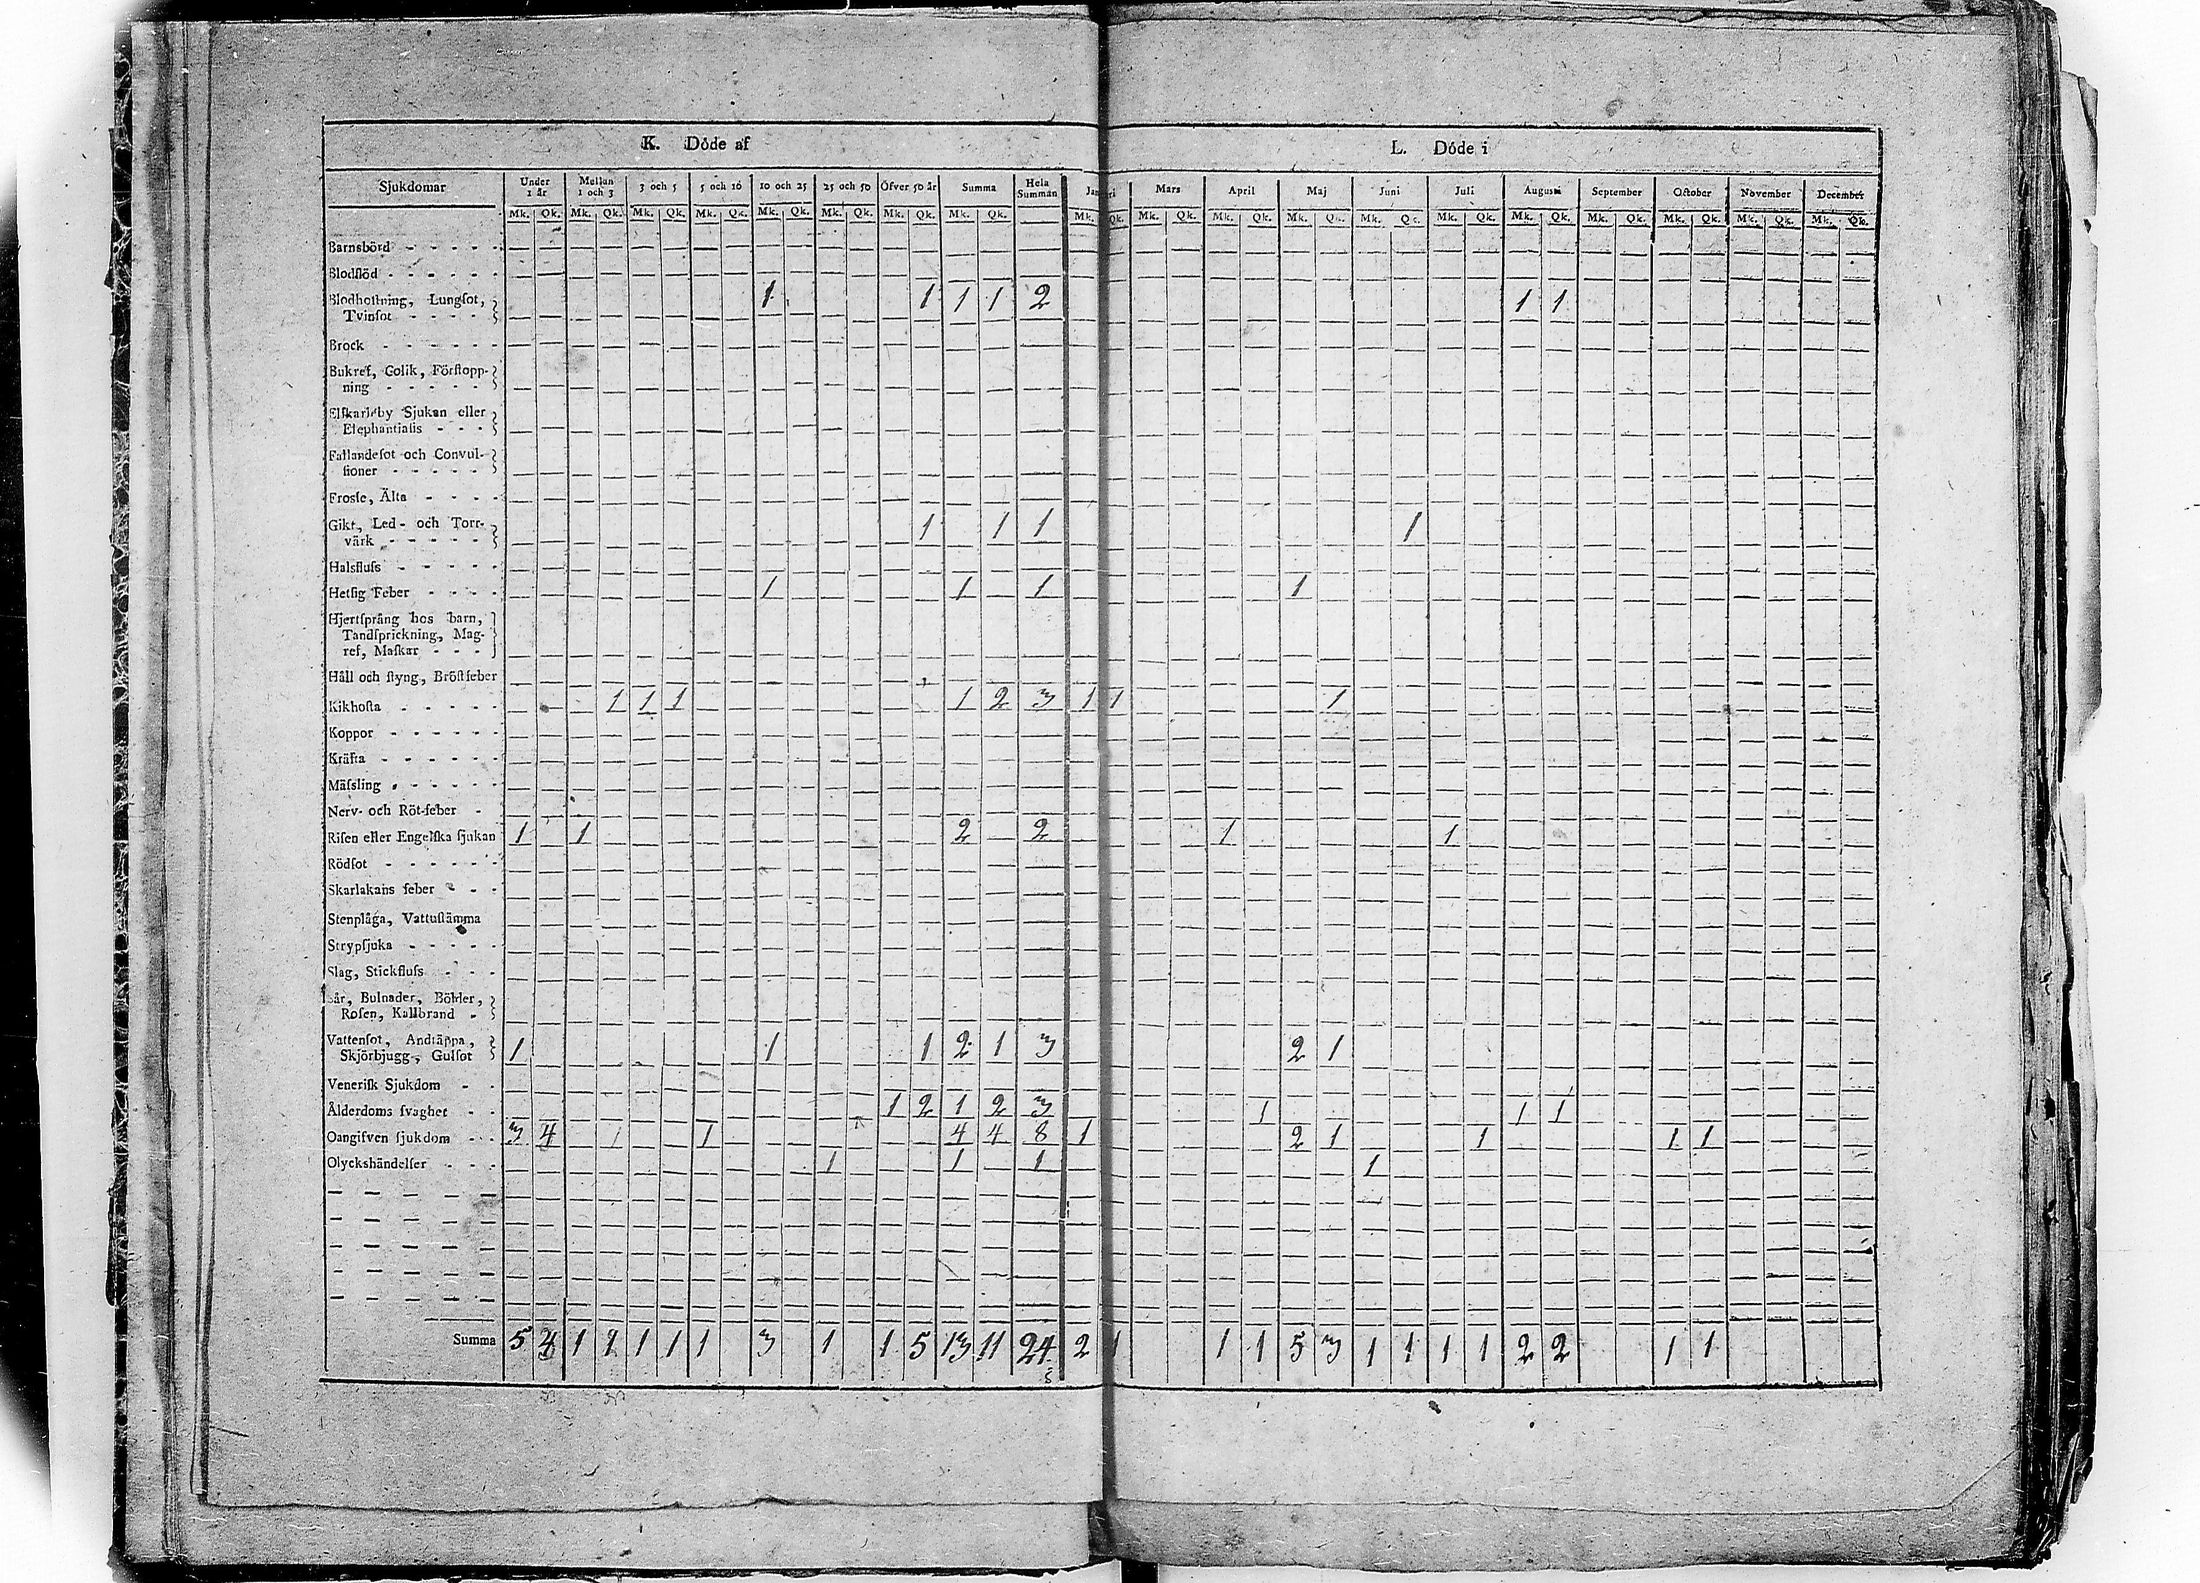 K. Döde af L. Döde i
Sjukdomar Under 1 år Mellan 1 och 3 3 och 5 5 och 10 10 och 25 25 och 50 Öfver 50 år Summa Hela Summan Mars April Maj Juni Juli Augusti September October November December
Mk. Qk. Mk. Qk. Mk. Qk. Mk. Qk. Mk. Qk. Mk. Qk. Mk. Qk. Mk. Qk. Mk. Qk. Mk. Qk. Mk. Qk. Mk. Qk. Mk. Qk. Mk. Qk. Mk. Qk. Mk. Qk. Mk. Qk. Mk. Qk. Mk. Qk.
Barnsbörd
Blodflöd
Blodhostning, Lungsot,
Tvinsot 1 1 1 1 2 1 1
Brock
Bukref, Colik, Förstopp-
ning
Elskarleby Sjukan eller
Elephantiasis
Fallandesot och Convul-
sioner
Frosse, Älta
Gikt, Led- och Torr-
värk 1 1 1 1
Halsfluss
Hetsig Feber 1 1 1 1
Hjertsprång hos barn,
Tandsprickning, Mag-
ref, Maskar
Håll och styng, Bröstfeber
Kikhosta 1 1 1 1 2 3 1 1 1
Koppor
Kräfta
Mässling
Nerv- och Röt-feber
Risen eller Engelska sjukan 1 1 2 2 1 1
Rödsot
Skarlakans feber
Stenplåga, Vattustämma
Strypsjuka
Slag, Stickfluss
Sår, Bulnader, Bölder,
Rosen, Kallbrand
Vattensot, Andtäppa,
Skjörbjugg, Gulsot 1 1 1 2 1 3 2 1
Venerisk Sjukdom
Ålderdoms svaghet 1 2 1 2 3 1 1 1
Oangifven sjukdom 3 4 1 1 4 4 8 1 2 1 1 1 1
Olyckshändelser 1 1 1 1
Summa 5 4 1 1 1 1 1 3 1 1 5 13 11 24 2 1 1 1 5 3 1 1 1 1 2 2 1 1